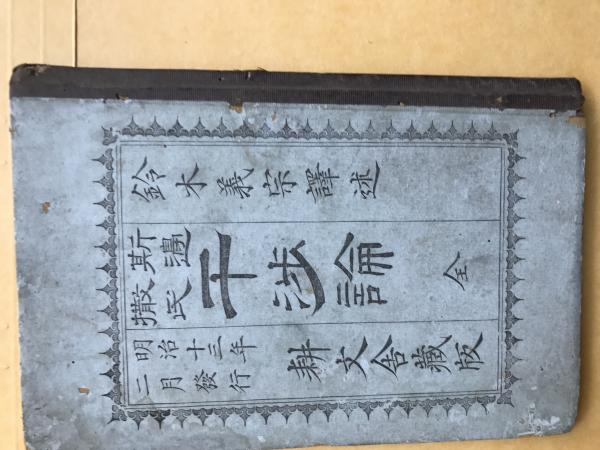 鈴木義宗譯述
斯邊
撒氏
干涉論
全
明治十三年
二月發行
耕文舎藏版